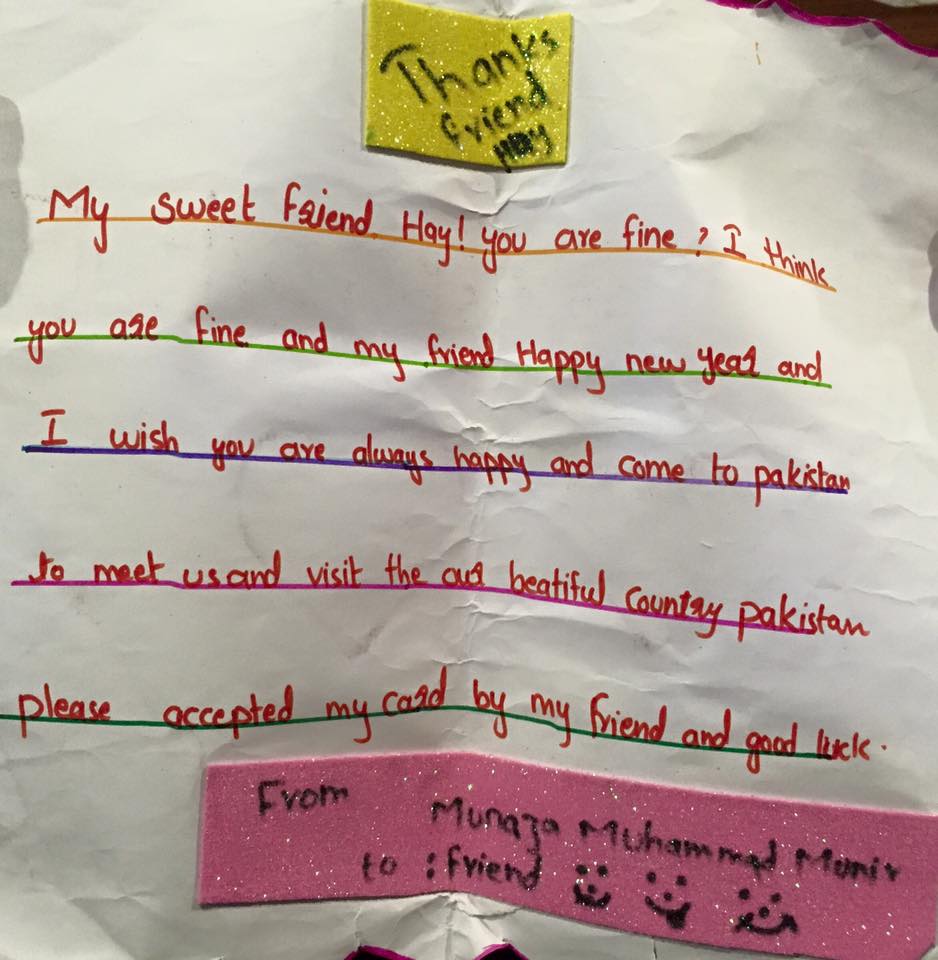 Thanks
friend
My sweet friend Hay! you are fine? I think
you are fine and my friend Happy new year and
I wish you are always happy and come to pakistan
to meet us and visit the our beatiful country pakistan
please accepted my card by my friend and good luck.
From Munaza Muhammad Munir
to : friend